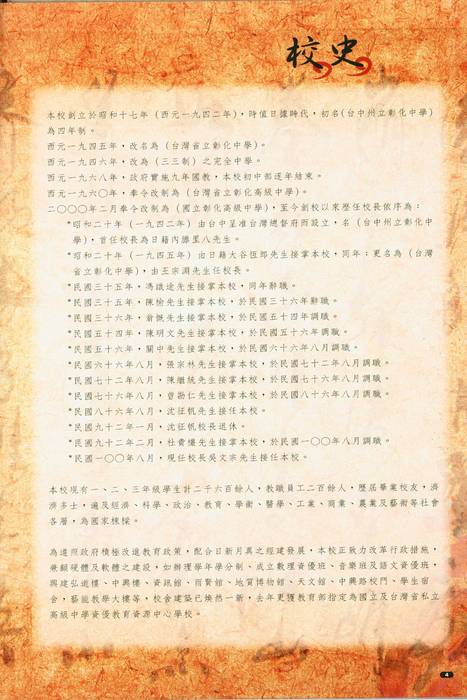 校史
本校創立於昭和十七年（西元一九四二年），時值日據時代，初名(台中州立彰化中學)
為四年制。
西元一九四五年，改名為（台灣省立彰化中學）。
西元一九四六年，改為（三三制）之完全中學。
西元一九六八年，政府實施九年國教，本校初中部逐年結束。
西元一九六〇年，奉令改制為（台灣省立彰化高級中學）。
二〇〇〇年二月奉令改制為（國立彰化高級中學），至今創校以來歷任校長依序為：
*昭和二十年（一九四二年）由台中呈准台灣總督府而設立，名（台中州立彰化中
學），首任校長為日籍內藤里八先生。
*昭和二十年（一九四五年）由日籍大谷恆郎先生接掌本校，同年：更名為（台灣
省立彰化中學），由王宗淵先生任校長。
*民國三十五年，馮識遠先生接掌本校，同年辭職。
*民國三十五年，陳榆先生接掌本校，於民國三十六年辭職。
*民國三十六年，翁慨先生接掌本校，於民國五十四年調職。
*民國五十四年，陳明文先生接掌本校，於民國五十六年調職。
*民國五十六年，關中先生接掌本校，於民國六十六年八月調職。
*民國六十六年八月，張宗林先生接掌本校，於民國七十二年八月調職。
*民國七十二年八月，陳繼統先生接掌本校，於民國七十六年八月調職。
*民國七十六年八月，曾勘仁先生接掌本校，於民國八十六年八月調職。
*民國八十六年八月，沈征帆先生接任本校。
*民國九十二年一月，沈征帆校長退休。
*民國九十二年二月，杜貴欉先生接掌本校，於民國一〇〇年八月調職。
*民國一〇〇年八月，現任校長吳文宗先生接任本校。
本校現有一、二、三年級學生計二千六百餘人，教職員工二百餘人，歷屆畢業校友，濟
濟多士，遍及經濟、科學、政治、教育、學術、醫學、工業、商業、農業及藝術等社會
各層，為國家棟樑。
為遵照政府積極改進教育政策，配合日新月異之經建發展，本校正致力改革行政措施，
兼顧硬體及軟體之建設，如辦理學年學分制、成立數理資優班、音樂班及語文資優班，
興建弘道樓、中興樓、資訊館、雨賢館、地質博物館、天文館、中興路校門、學生宿
舍，藝能教學大樓等，校舍建築已煥然一新，去年更獲教育部指定為國立及台灣省私立
高級中學資優教育資源中心學校。
4